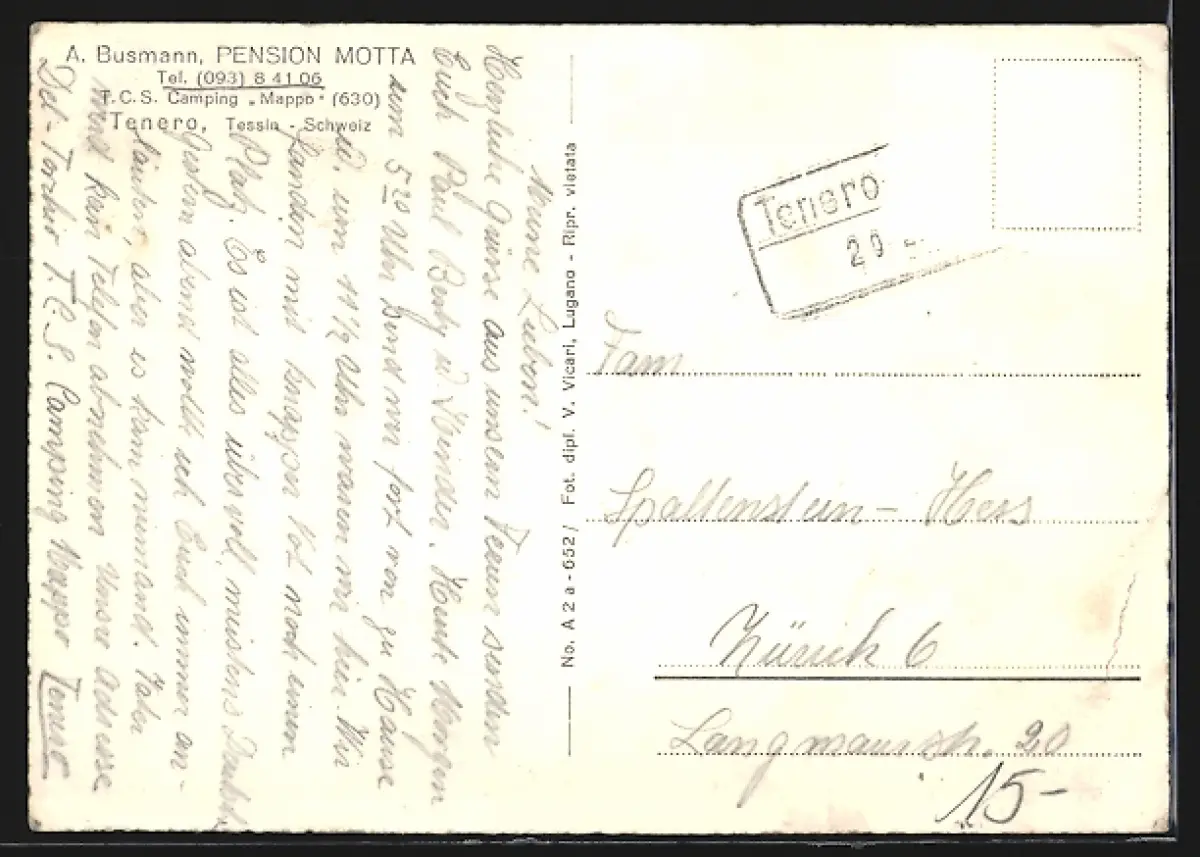 A. Busmann, PENSION MOTTA
Tel. (093) 8 41 06
T.C.S. Camping „Mappo“ (630)
Tenero, Tessin - Schweiz
Meine Lieben!
Herzliche Grüsse aus unsern Ferien senden
Euch Paul Berty u. Kinder. Heute Morgen
um 5 20 Uhr sind wir fort von zu Hause
u. um 11 1/2 Uhr waren wir hier. Wir
fanden mit knapper Not noch einen
Platz. Es ist alles übervoll, meistens Deutsche
Gestern abend wollt ich Euch immer an-
läuten, aber es kam niemand.
wird kein Telefon abnehmen Unsre Adresse
T.C.S. Camping Mappo Tenero
No. A 2 a - 652 / Fot. dipl. V. Vicari, Lugano - Ripr. vietata
Tenero
20
Fam
Spaltenstein - Hess
Zürich 6
Langmauerstr. 20
15-